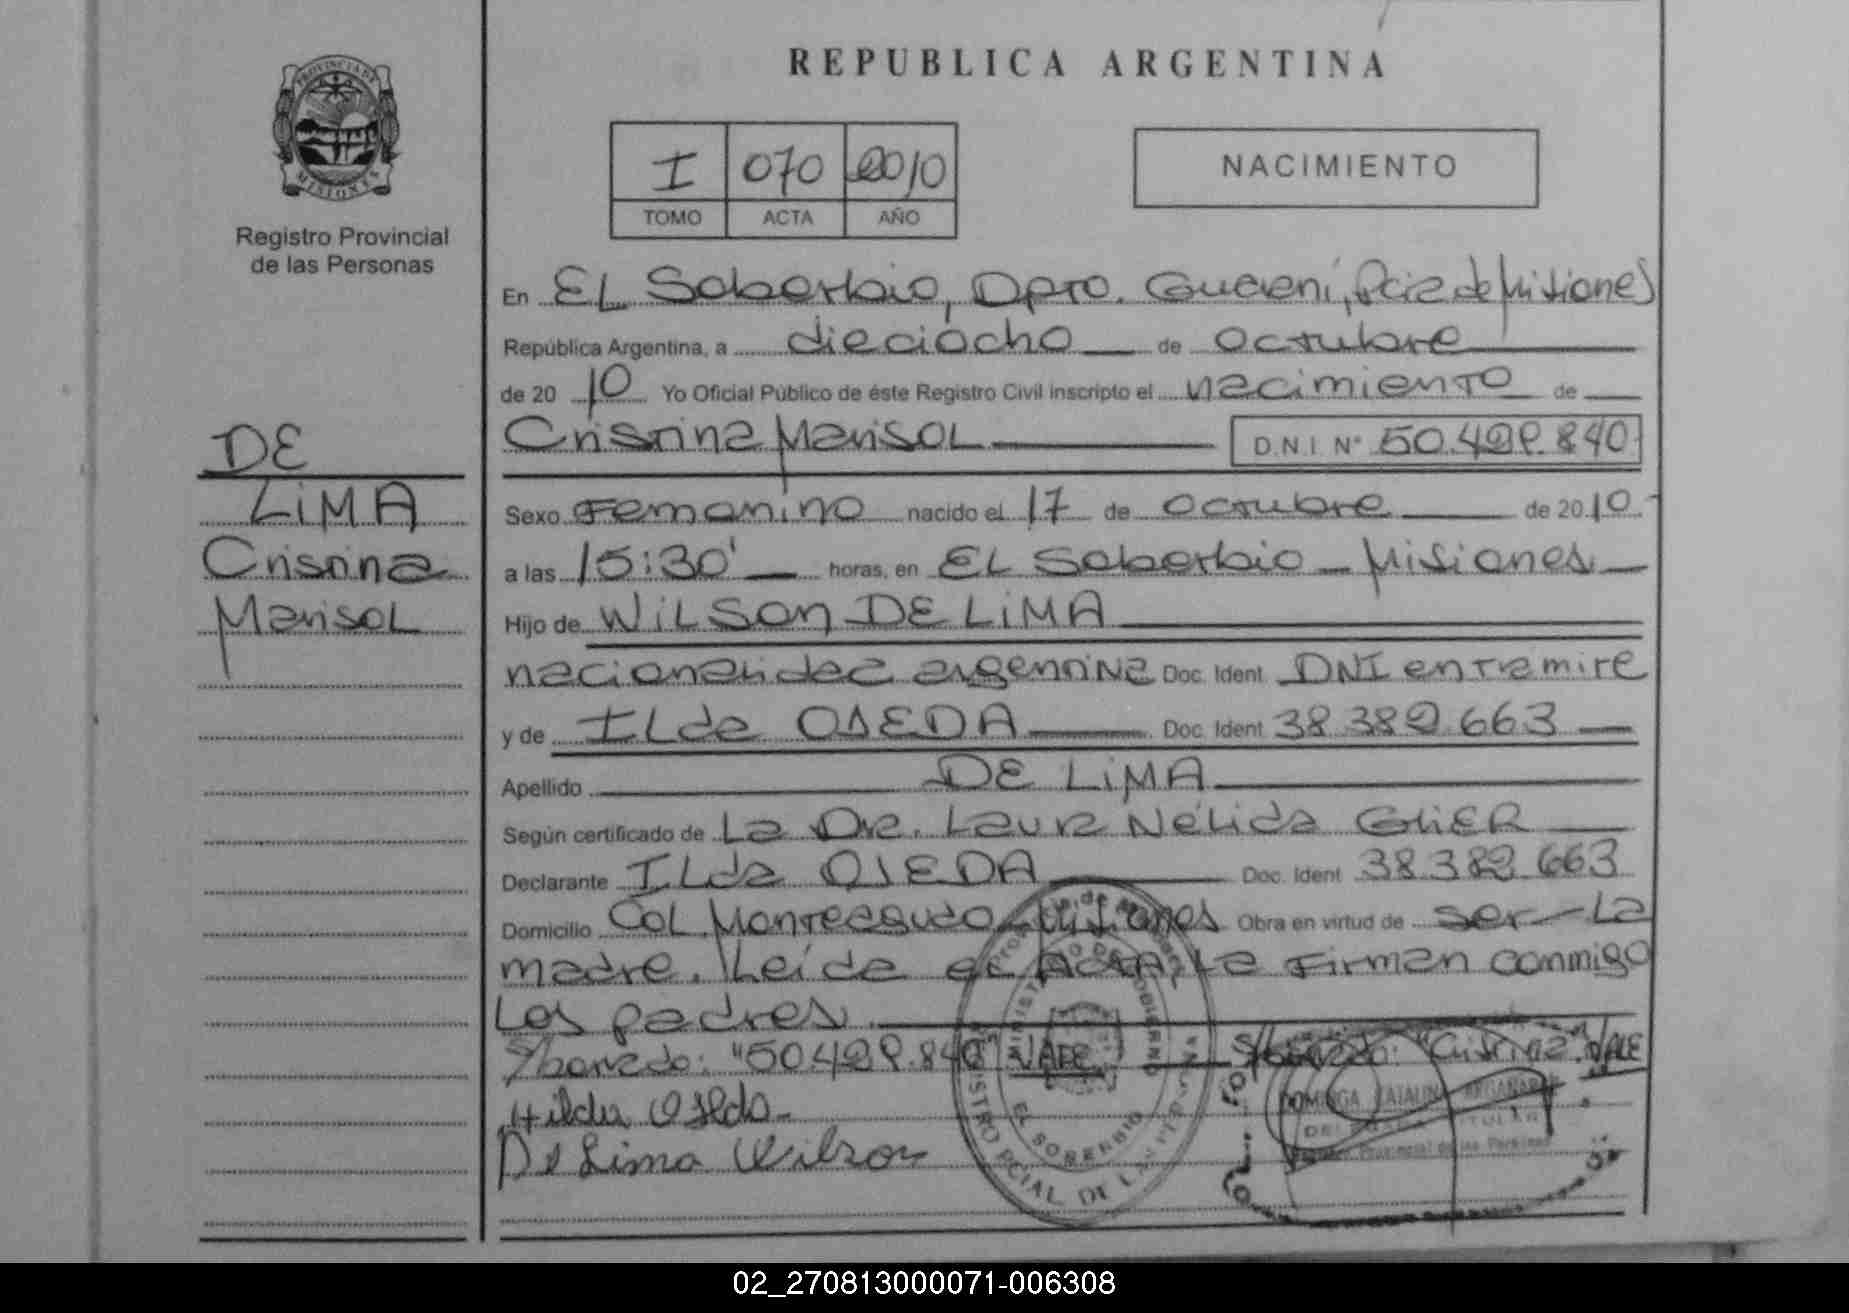 REPUBLICA ARGENTINA
PROVINCIA DE
MISIONES
Registro Provincial
de las Personas
I 070 2010
TOMO ACTA AÑO
NACIMIENTO
DE
LIMA
Cristina
Marisol
En EL Soberbio, Dpto. Guaraní, Pcia de Misiones
República Argentina, a dieciocho de octubre
de 20 10 Yo Oficial Público de éste Registro Civil inscripto el nacimiento de
Cristina Marisol D.N.I. N° 50.429.840
Sexo Femenino nacido el 17 de octubre de 20 10.-
a las 15:30' horas, en EL Soberbio - Misiones
Hijo de WILSON DE LIMA
nacionalidad argentina Doc. Ident. DNI en tramite
y de ILda OJEDA Doc. Ident. 38.382.663
Apellido DE LIMA
Según certificado de La Dra. Laura Nélida
Declarante ILda OJEDA Doc. Ident 38.382.663
Domicilio Col. Monteagudo - Misiones Obra en virtud de ser - La
madre. Leída el ACTA, La Firman conmigo
Los padres.
S/borrado: "50.429.840" VALE S/borrado: "Cristina" VALE
Hilda
De Lima Wilson
MINISTERIO DE GOBIERNO
EL SOBERBIO
DOMINGA CATALINA
Provincial de las Personas
02_270813000071-006308